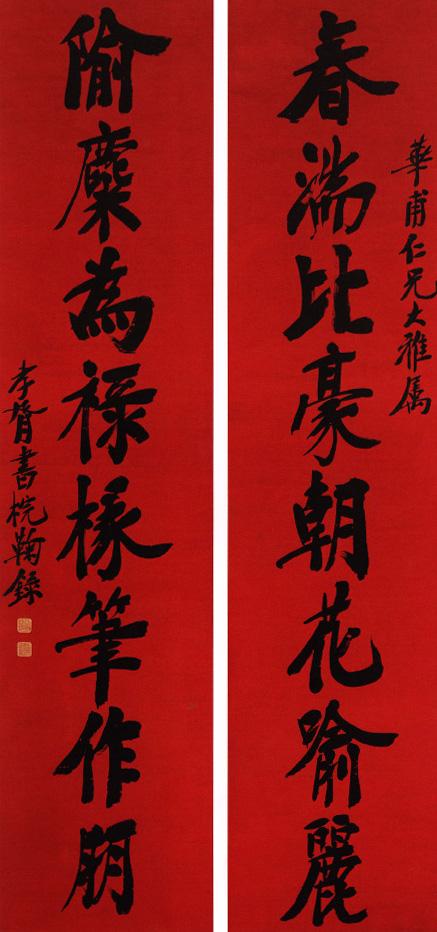 華甫仁兄大雅属
春湍比豪朝花喻麗
隃麋為祿椽筆作朋
孝胥書梡鞠錄